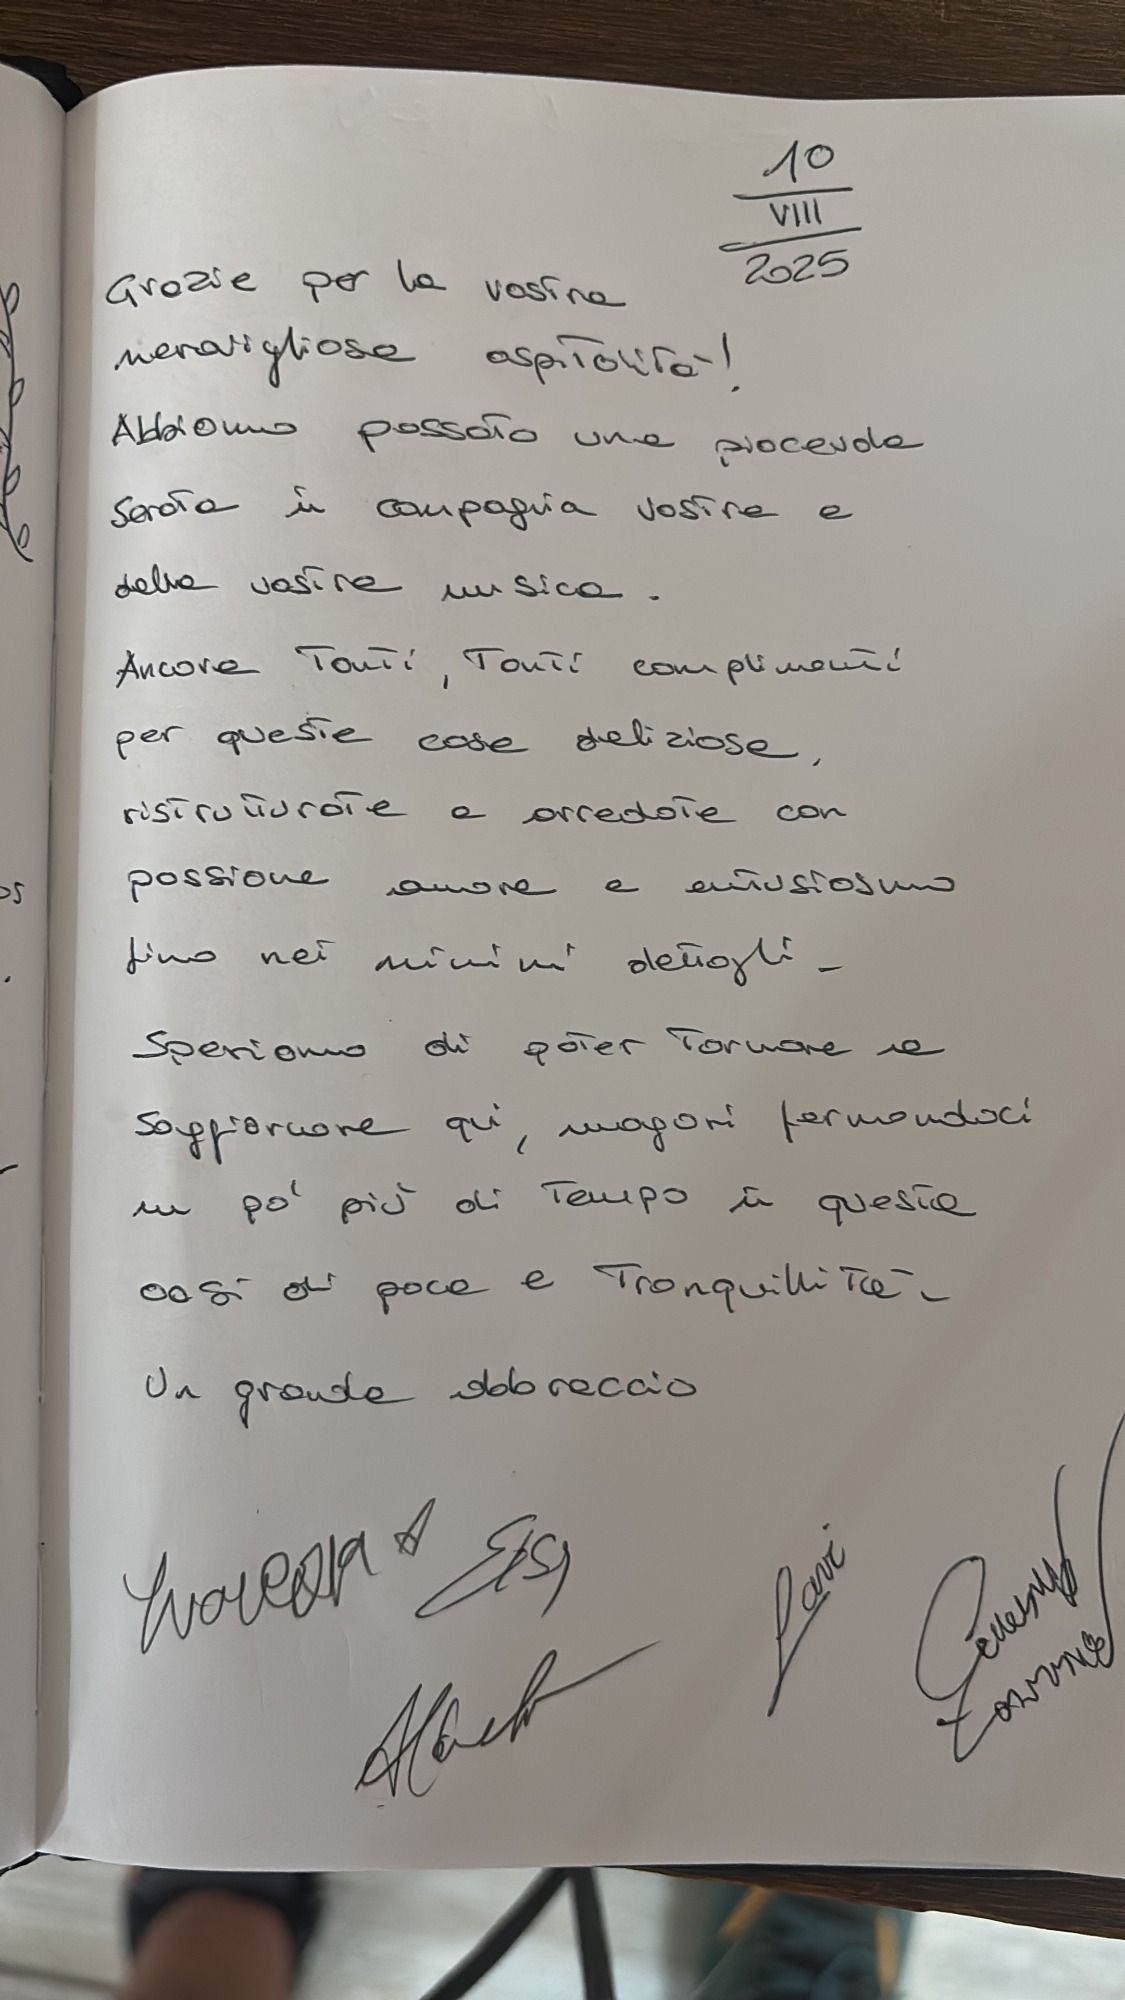 10
VIII
2025
Grazie per la vostra
meravigliosa ospitalità!
Abbiamo passato una piacevole
serata in compagnia vostra e
della vostra musica.
Ancora Tanti, Tanti complimenti
per queste case deliziose,
ristrutturate e arredate con
passione amore e entusiasmo
fino nei minimi dettagli -
Speriamo di poter Tornare e
soggiornare qui, magari fermandoci
un po' più di Tempo in questa
oasi di pace e Tranquillità -
Un grande abbraccio